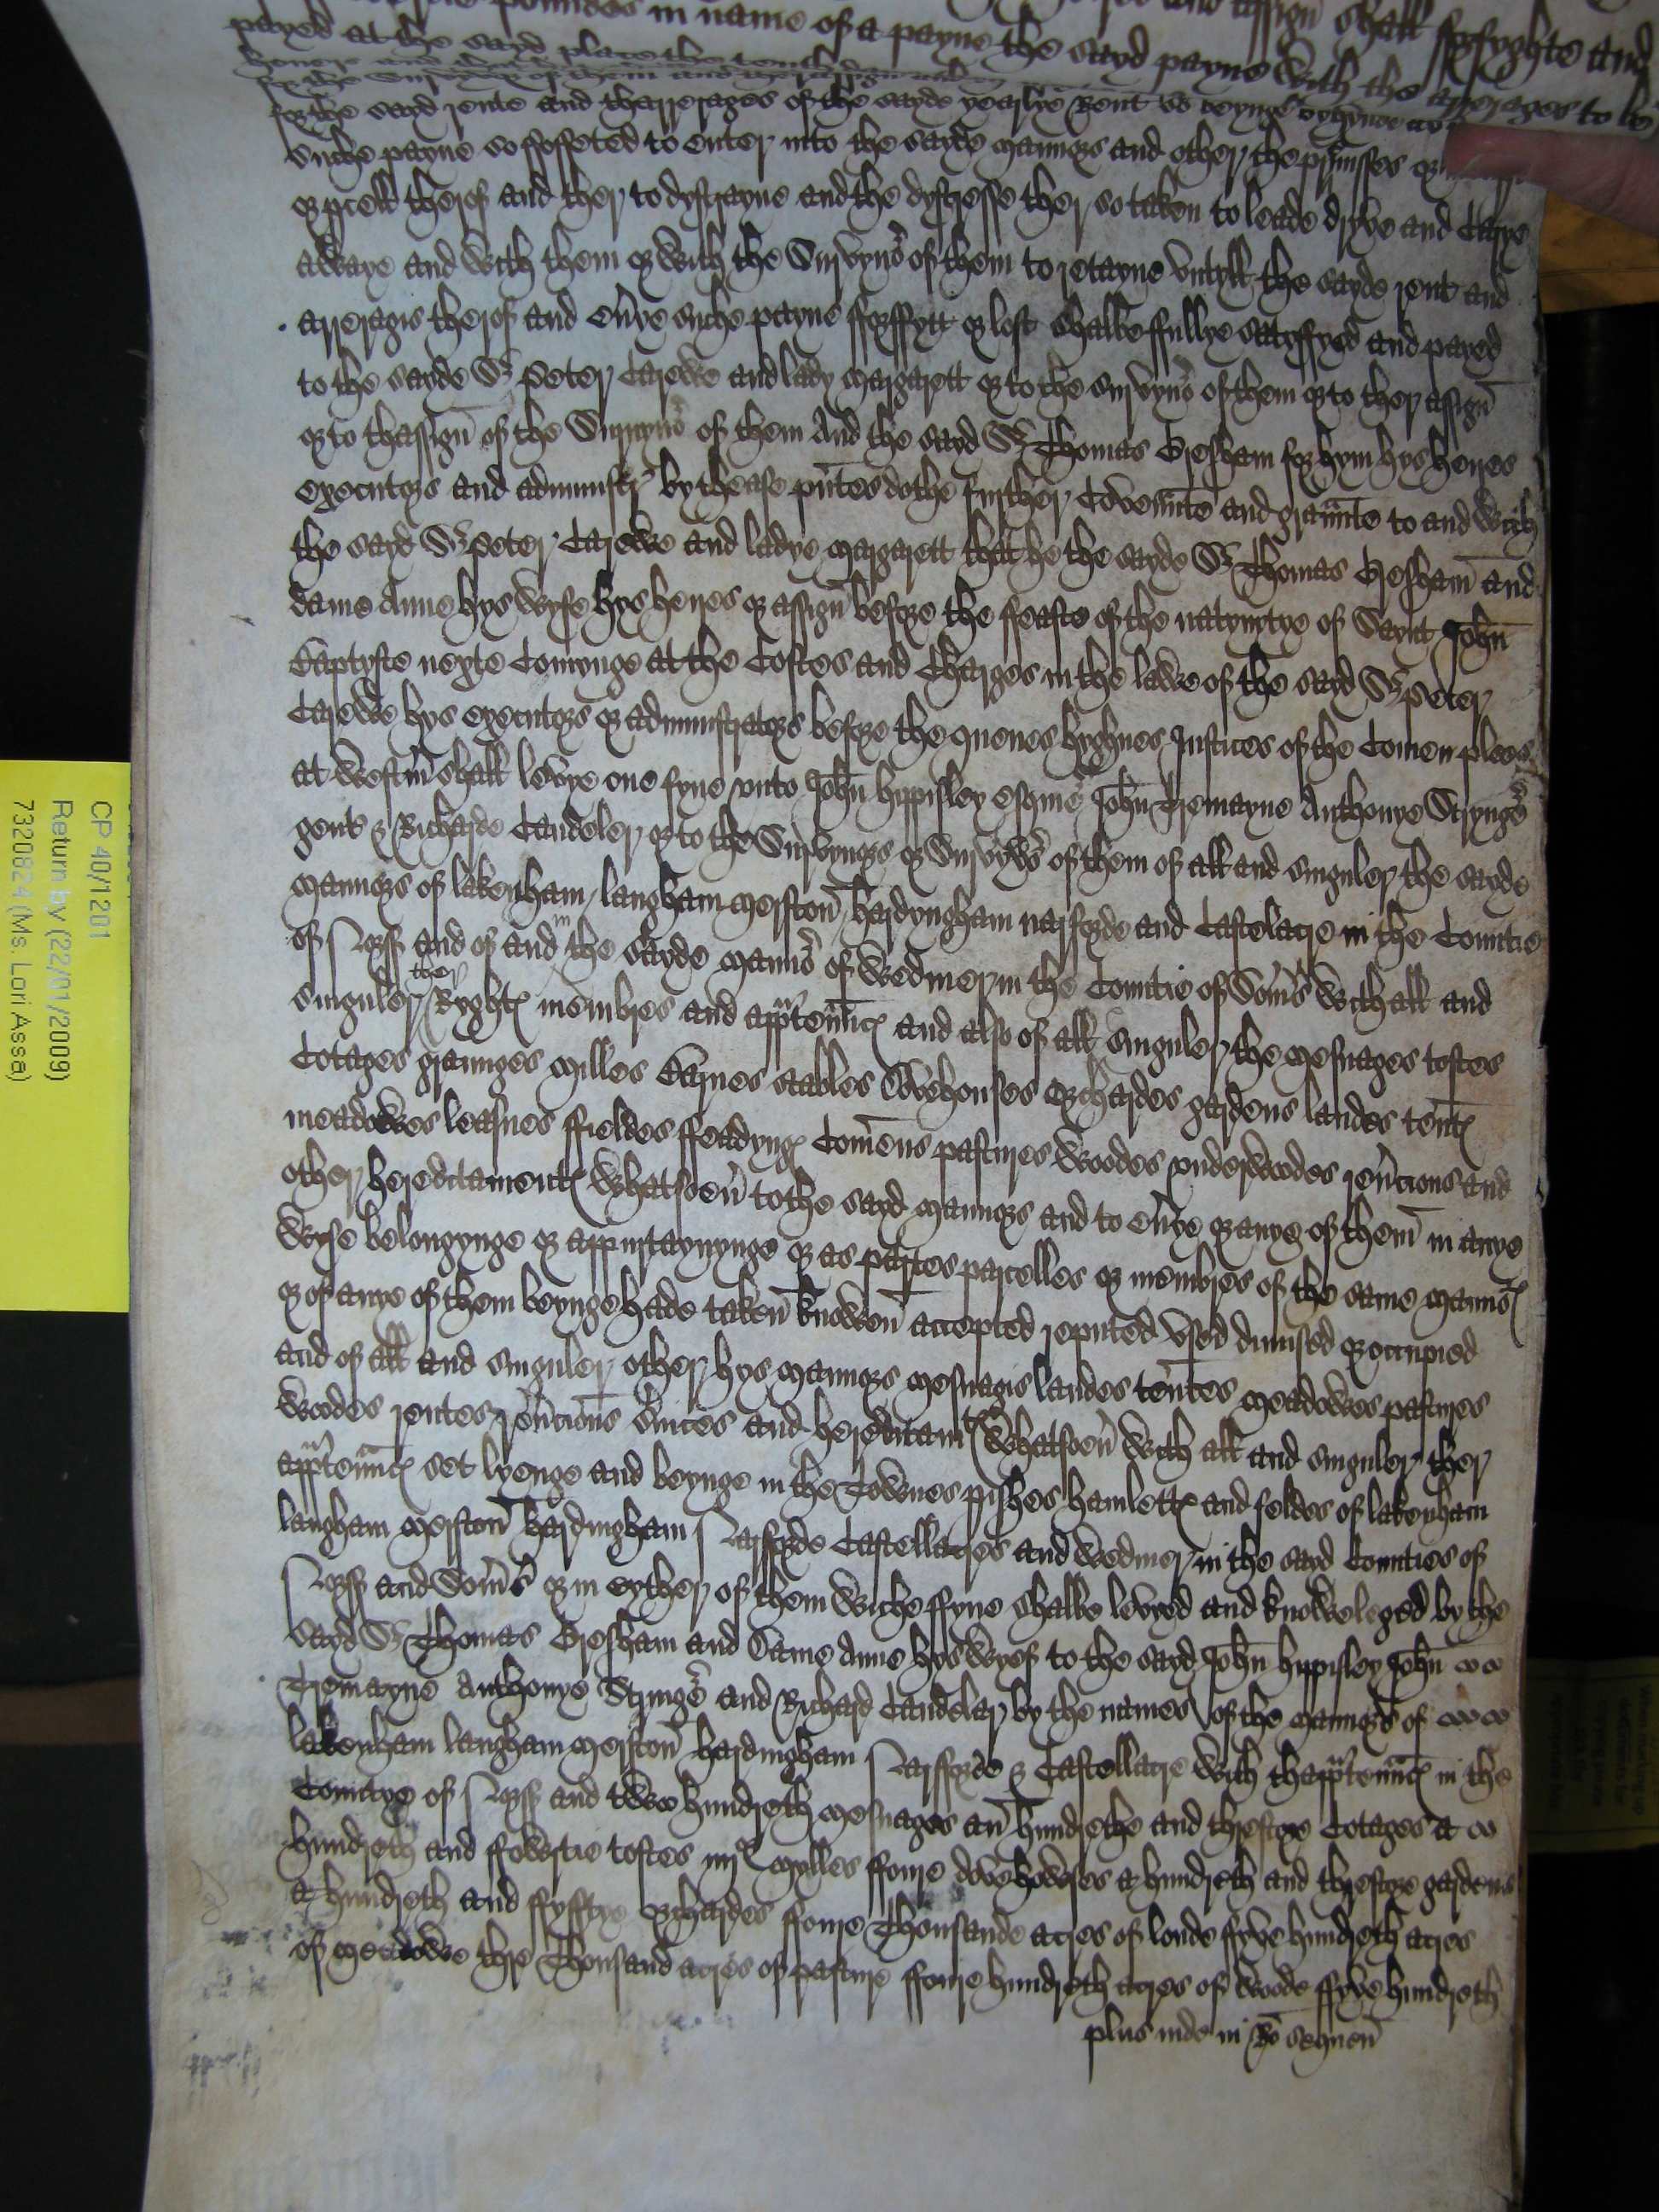 poundes in name of a payne the sayd payne with the arrerages to be
payed at the sayd place then
for the sayd rente and tharrerages of the sayde yearlye Rent so beynge behynde and
suche payne so forfeted to enter into the sayde mannors and other the pr̄misses or
or p̄cell therof and ther to dystrayne and the dystresse ther so taken to leade dryve and Carye
awaye and with them or with the Survyuō of them to retayne vntyll the sayde rent and
arreragis therof and eūye suche payne fforffytt or lost shalbe ffullye satysffyed and payed
to the sayde Sr Peter Carewe and lady margarett or to the survyuō of them or to ther assign̄
or to thassign̄ of the Survyuō of them And the sayd Sr Thomas Gresham for hym hys heires
executors and administr̄ by thease p̄ntes dothe further Covenn̄te and graunte to and with
the sayd Sr Peter Carewe and ladye margarett that he the sayde Sr Thomas Gresham and
dame Anne hys wyfe hys heires or assign̄ before the ffeaste of the natyvytye of Saynt John̄
Baptyste nexte Comynge at the Costes and Charges in the lawe of the sayd Sr Peter
Carewe hys executors or administrators before the quenes hyghnes Justices of the Comen plees
at westm̄ shall levye one fyne vnto John̄ hippisley esquiē John̄ Tremayne Anthonye Strynḡ
gent & Richarde Candeler or to the Survyuors or Survyuō of them of all and singuler the sayde
mannors of lakenham langham merston̄ hardyngham narforde and Castelacre in the Countie
of Norff and of and in the sayde mannō of wedmer in the Countie of Som̄s with all and
singuler ther Ryghtꝭ membres and app̄tennc̄ꝭ and also of all singuler the mesuages toftes
Cotages graunges milles Barnes stables Dovehouses Orchardes gardens landes ten̄tꝭ
meadowes leasues ffieldes ffeadyngꝭ Com̄ens pastures woodes vnderwoodes rev̄cions and
other hereditamentꝭ whatsoev̄ to the sayd mannors and to ev̄ye or anye of them̄ in anye
wyse belongynge or appurtaynynge or as partes parcelles or membres of the same mannōꝭ
or of anye of them beynge hade taken̄ knowen̄ accepted reputed vsed dimised or occupied
and of all and singuler other hys mannors mesuagis landes ten̄tes meadowes pastures
woodes rentes rev̄cions s̄vices and hereditamtꝭ whatsoev̄ with all and singuler ther
app̄tennc̄ꝭ set lyenge and beynge in the Townes p̄ishes hamlettꝭ and feldes of lakenham
langham merston̄ hardingham Narfforde Castellacres and wedmer in the sayd Counties of
Norff and Som̄s or in eyther of them wiche ffyne shalbe levyed and knoweleged by the
sayd Sr Thomas Gresham and Dame Anne hys wyef to the sayd John̄ hippisley John̄
Tremayne Anthonye Strinḡ and Richard Candelar by the names of the mannors of
lakenham langham merston̄ hardingham Narfforde & Castellacre with thapp̄tennc̄ꝭ in the
Countye of Norff and twoo hundreth mesuages an̄ hundrethe and threscore Cotages a
hundreth and ffowrtie toftes iiijor mylles ffoure dovehowses a hundreth and threscore gardens
a hundreth and ffyfftye orchardes ffoure Thousande acres of londe ffyve hundreth acres
of meadowe thre Thousand acres of pasture ffoure hundreth acres of woode ffyve hundreth
plus inde in Ro sequen̄
CP 40/1201
Return by (22/01/2009)
7320824 (Ms. Lori Assa)